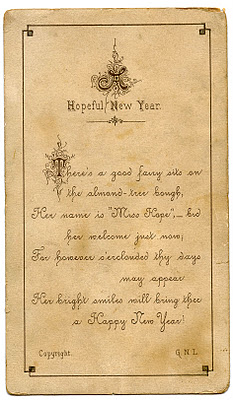 A
Hopeful New Year.
There's a good fairy sits on
the almond-tree bough,
Her name is "Miss Hope",— bid
her welcome just now;
For however o'erclouded thy days
may appear
Her bright smiles will bring thee
a Happy New Year!
Copyright. G.N.L.